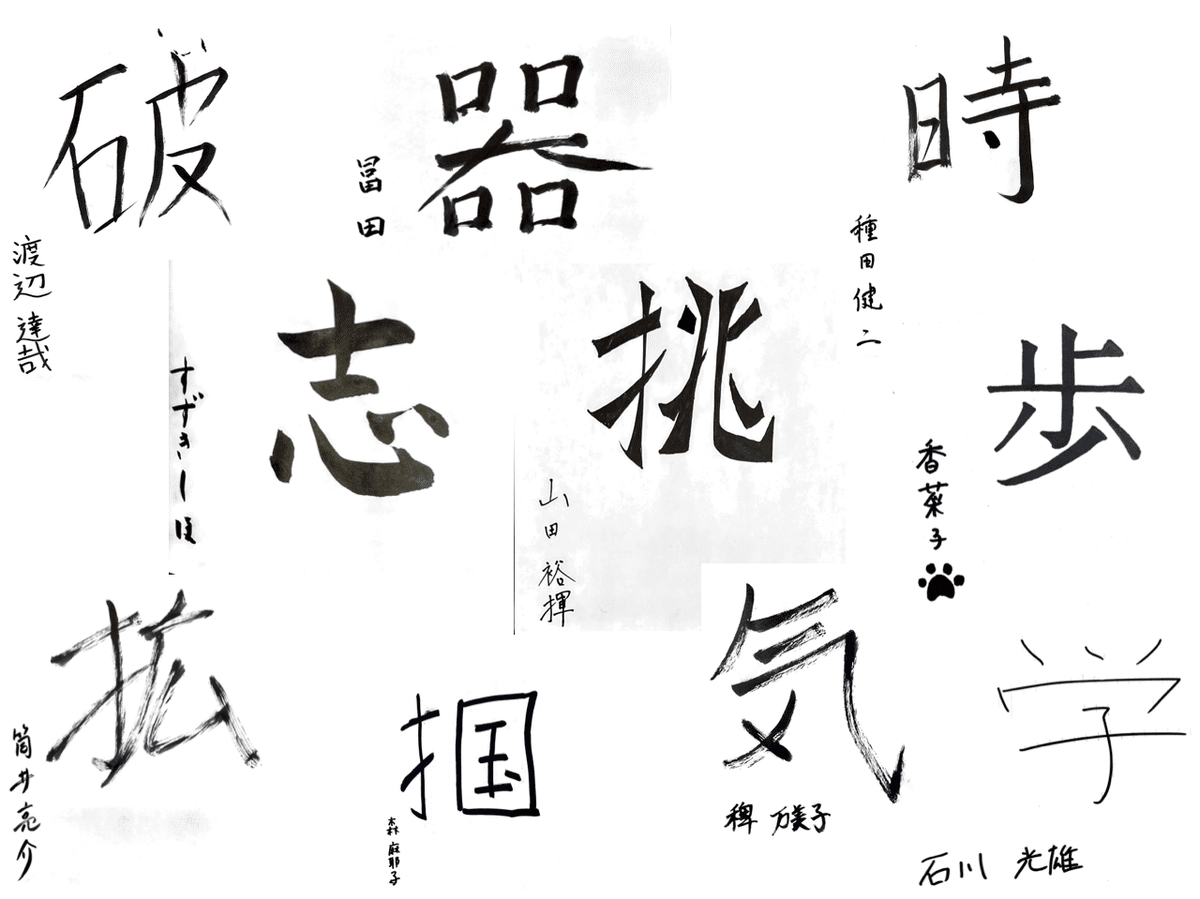 破
渡辺 達哉
器
冨田
時
種田健二
志
すずきしほ
挑
山田 裕揮
歩
香菜子
拡
筒井亮介
掴
森 麻耶子
気
稗 万美子
学
石川 光雄